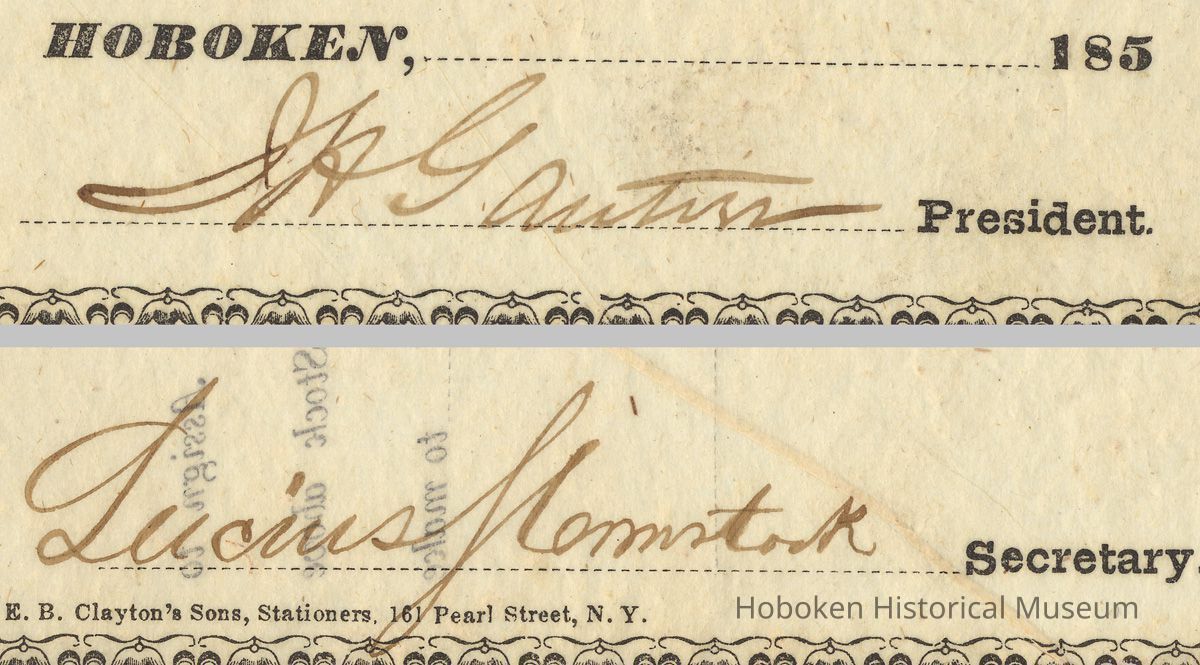 HOBOKEN, 185
J H Gautier President.
Assign. to
Stock above
to make
Lucius Comstock Secretary.
E. B. Clayton's Sons, Stationers, 161 Pearl Street, N. Y.
Hoboken Historical Museum